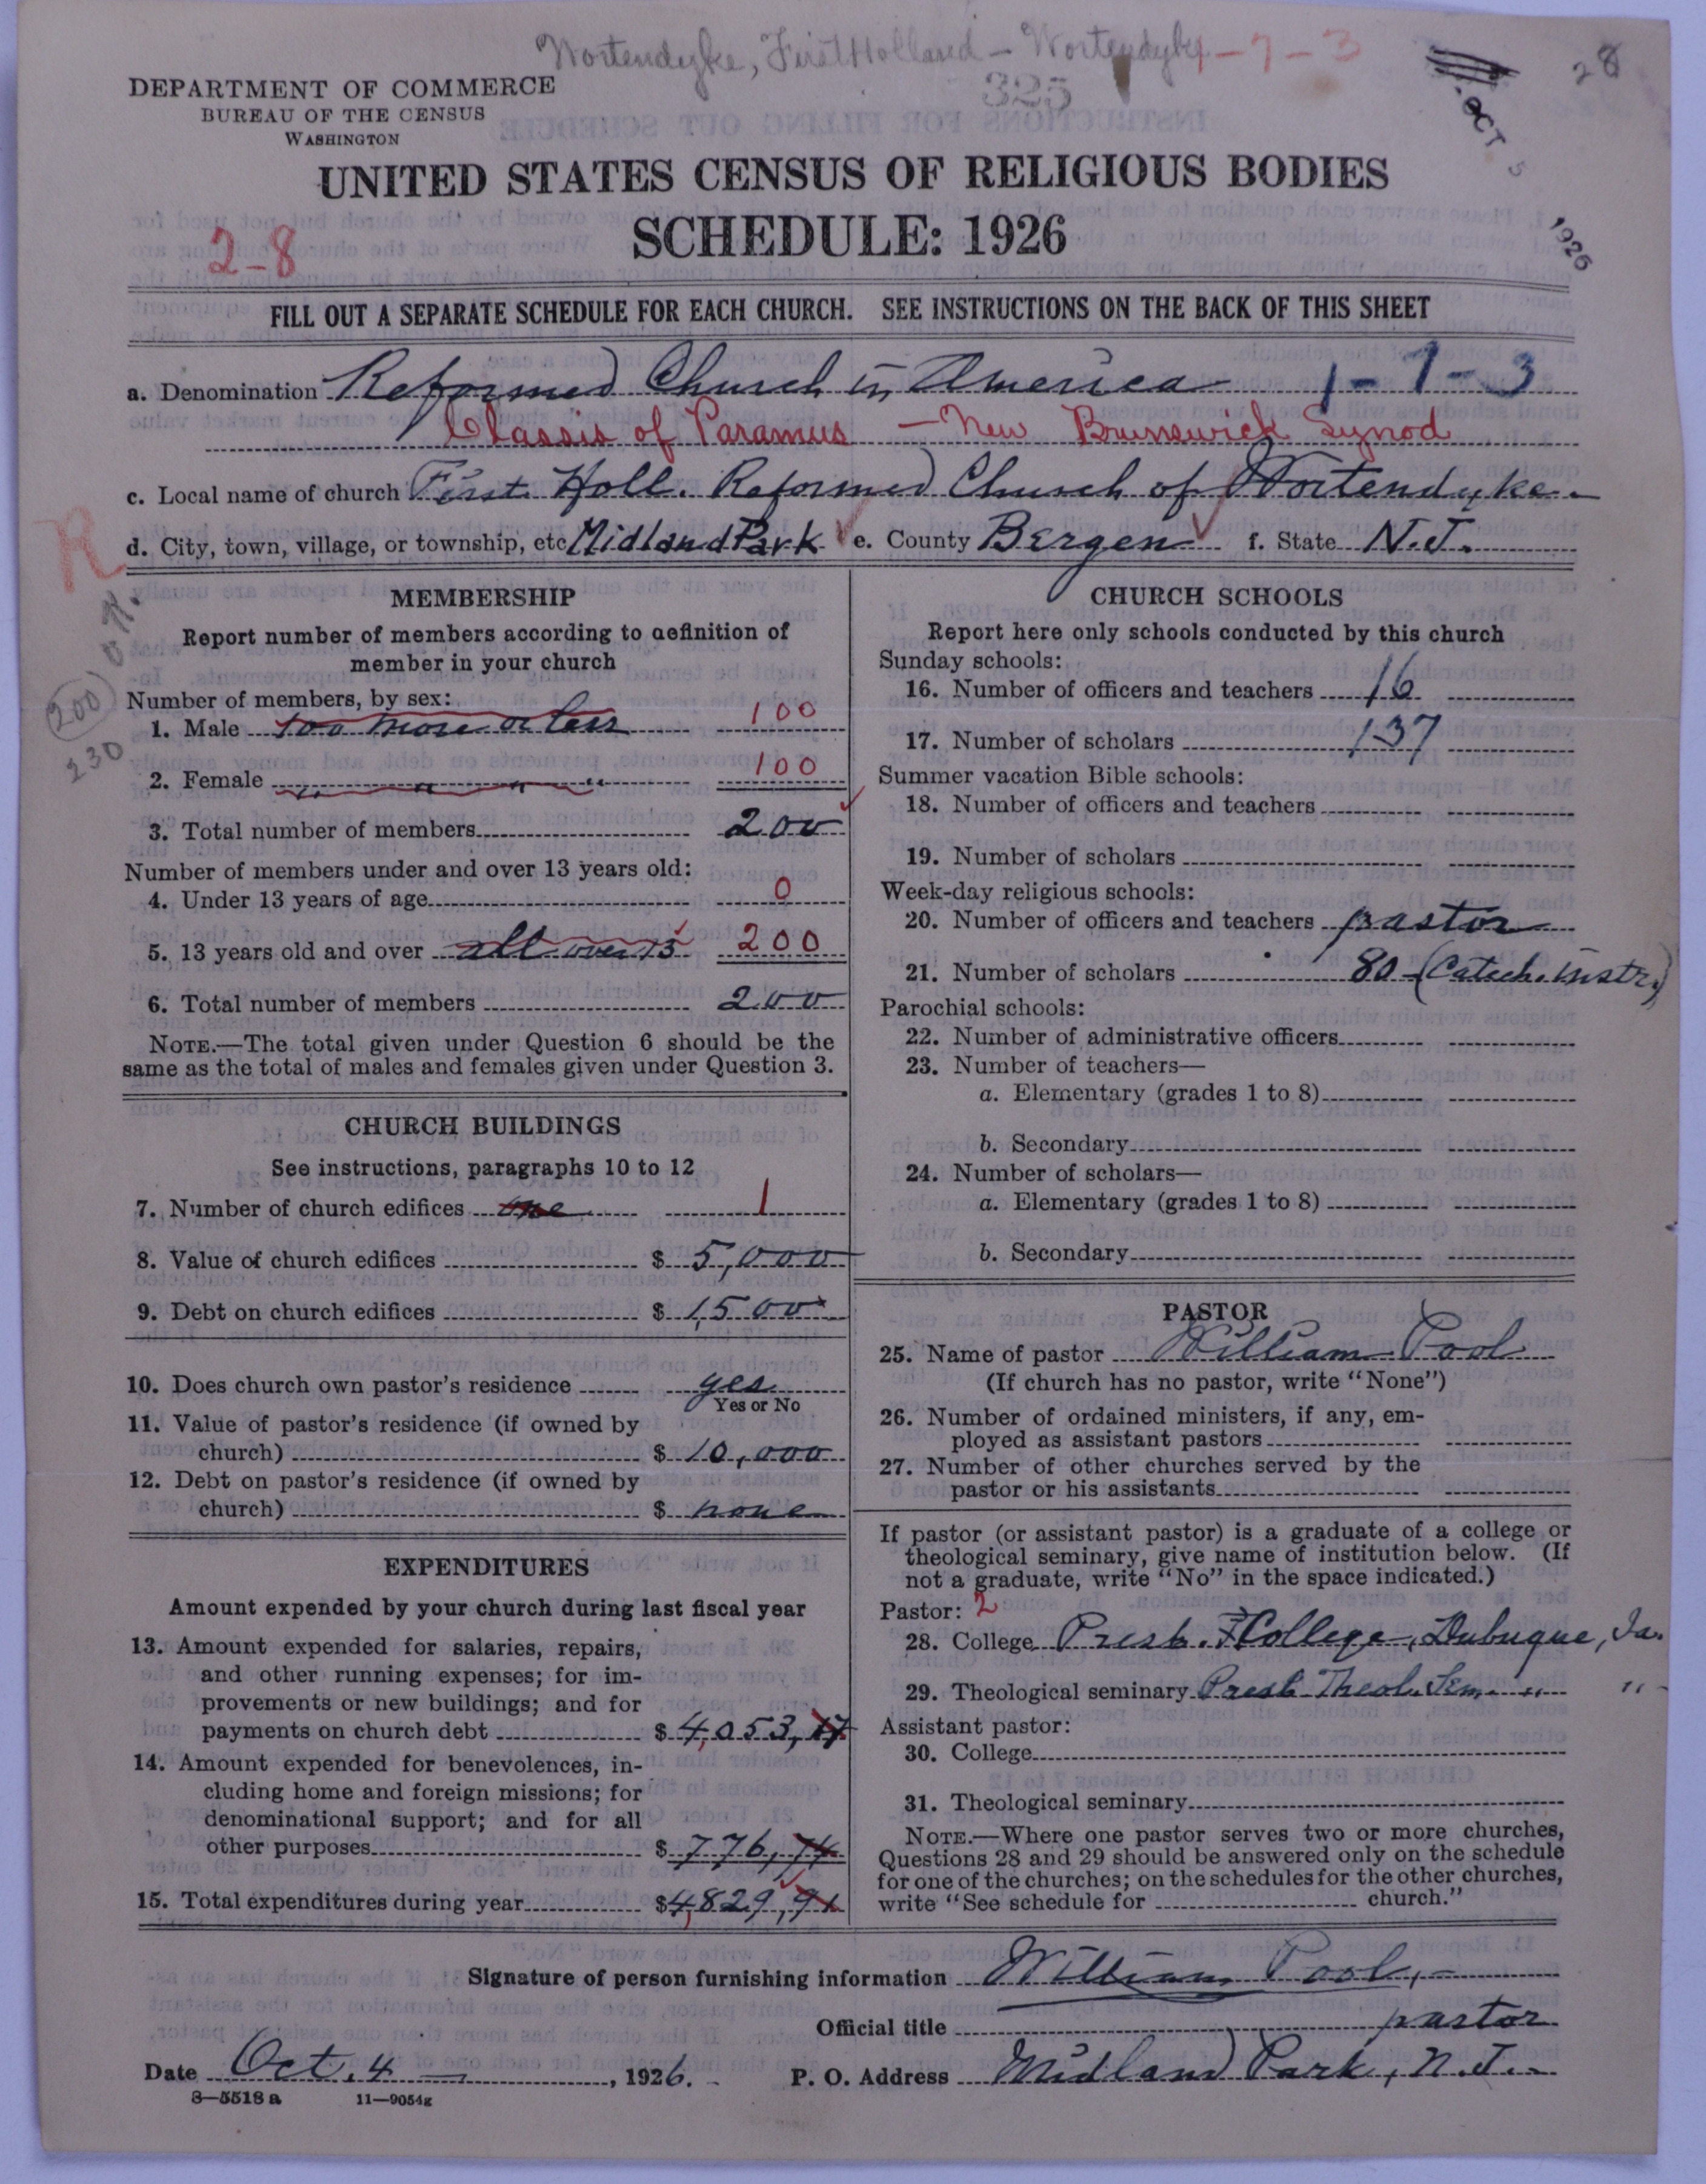 Wortendyke, First Holland - Wortendyke 1-7-3
325
28
OCT 5 1926
DEPARTMENT OF COMMERCE
BUREAU OF THE CENSUS
WASHINGTON
UNITED STATES CENSUS OF RELIGIOUS BODIES
SCHEDULE: 1926
2-8
FILL OUT A SEPARATE SCHEDULE FOR EACH CHURCH. SEE INSTRUCTIONS ON THE BACK OF THIS SHEET
a. Denomination Reformed Church in America 1-7-3
Classis of Paramus - New Brunswick Synod
c. Local name of church First Holl. Reformed Church of Wortendyke
R
d. City, town, village, or township, etc Midland Park e. County Bergen f. State N.J.
MEMBERSHIP
Report number of members according to definition of
member in your church
Number of members, by sex:
1. Male 100 more or less 100
2. Female " " " " 100
3. Total number of members 200
200
230
Number of members under and over 13 years old:
4. Under 13 years of age 0
5. 13 years old and over all over 13 200
6. Total number of members 200
NOTE.—The total given under Question 6 should be the
same as the total of males and females given under Question 3.
CHURCH BUILDINGS
See instructions, paragraphs 10 to 12
7. Number of church edifices one 1
8. Value of church edifices $ 5,000
9. Debt on church edifices $ 1,500
10. Does church own pastor's residence yes
Yes or No
11. Value of pastor's residence (if owned by
church) $ 10,000
12. Debt on pastor's residence (if owned by
church) $ none
EXPENDITURES
Amount expended by your church during last fiscal year
13. Amount expended for salaries, repairs,
and other running expenses; for im-
provements or new buildings; and for
payments on church debt $ 4,053,17
14. Amount expended for benevolences, in-
cluding home and foreign missions; for
denominational support; and for all
other purposes $ 776,74
15. Total expenditures during year $ 4,829,91
CHURCH SCHOOLS
Report here only schools conducted by this church
Sunday schools:
16. Number of officers and teachers 16
17. Number of scholars 137
Summer vacation Bible schools:
18. Number of officers and teachers
19. Number of scholars
Week-day religious schools:
20. Number of officers and teachers pastor
21. Number of scholars 80 (Catech. instr.)
Parochial schools:
22. Number of administrative officers
23. Number of teachers—
a. Elementary (grades 1 to 8)
b. Secondary
24. Number of scholars—
a. Elementary (grades 1 to 8)
b. Secondary
PASTOR
25. Name of pastor William Pool
(If church has no pastor, write "None")
26. Number of ordained ministers, if any, em-
ployed as assistant pastors
27. Number of other churches served by the
pastor or his assistants
If pastor (or assistant pastor) is a graduate of a college or
theological seminary, give name of institution below. (If
not a graduate, write "No" in the space indicated.)
Pastor: 2
28. College Presb. College, Dubuque, Ia.
29. Theological seminary Presb Theol. Sem. " "
Assistant pastor:
30. College
31. Theological seminary
NOTE.—Where one pastor serves two or more churches,
Questions 28 and 29 should be answered only on the schedule
for one of the churches; on the schedules for the other churches,
write "See schedule for church."
Signature of person furnishing information William Pool,
Official title pastor
Date Oct. 4, 1926. P. O. Address Midland Park, N.J.
8—5518 a 11—9054g